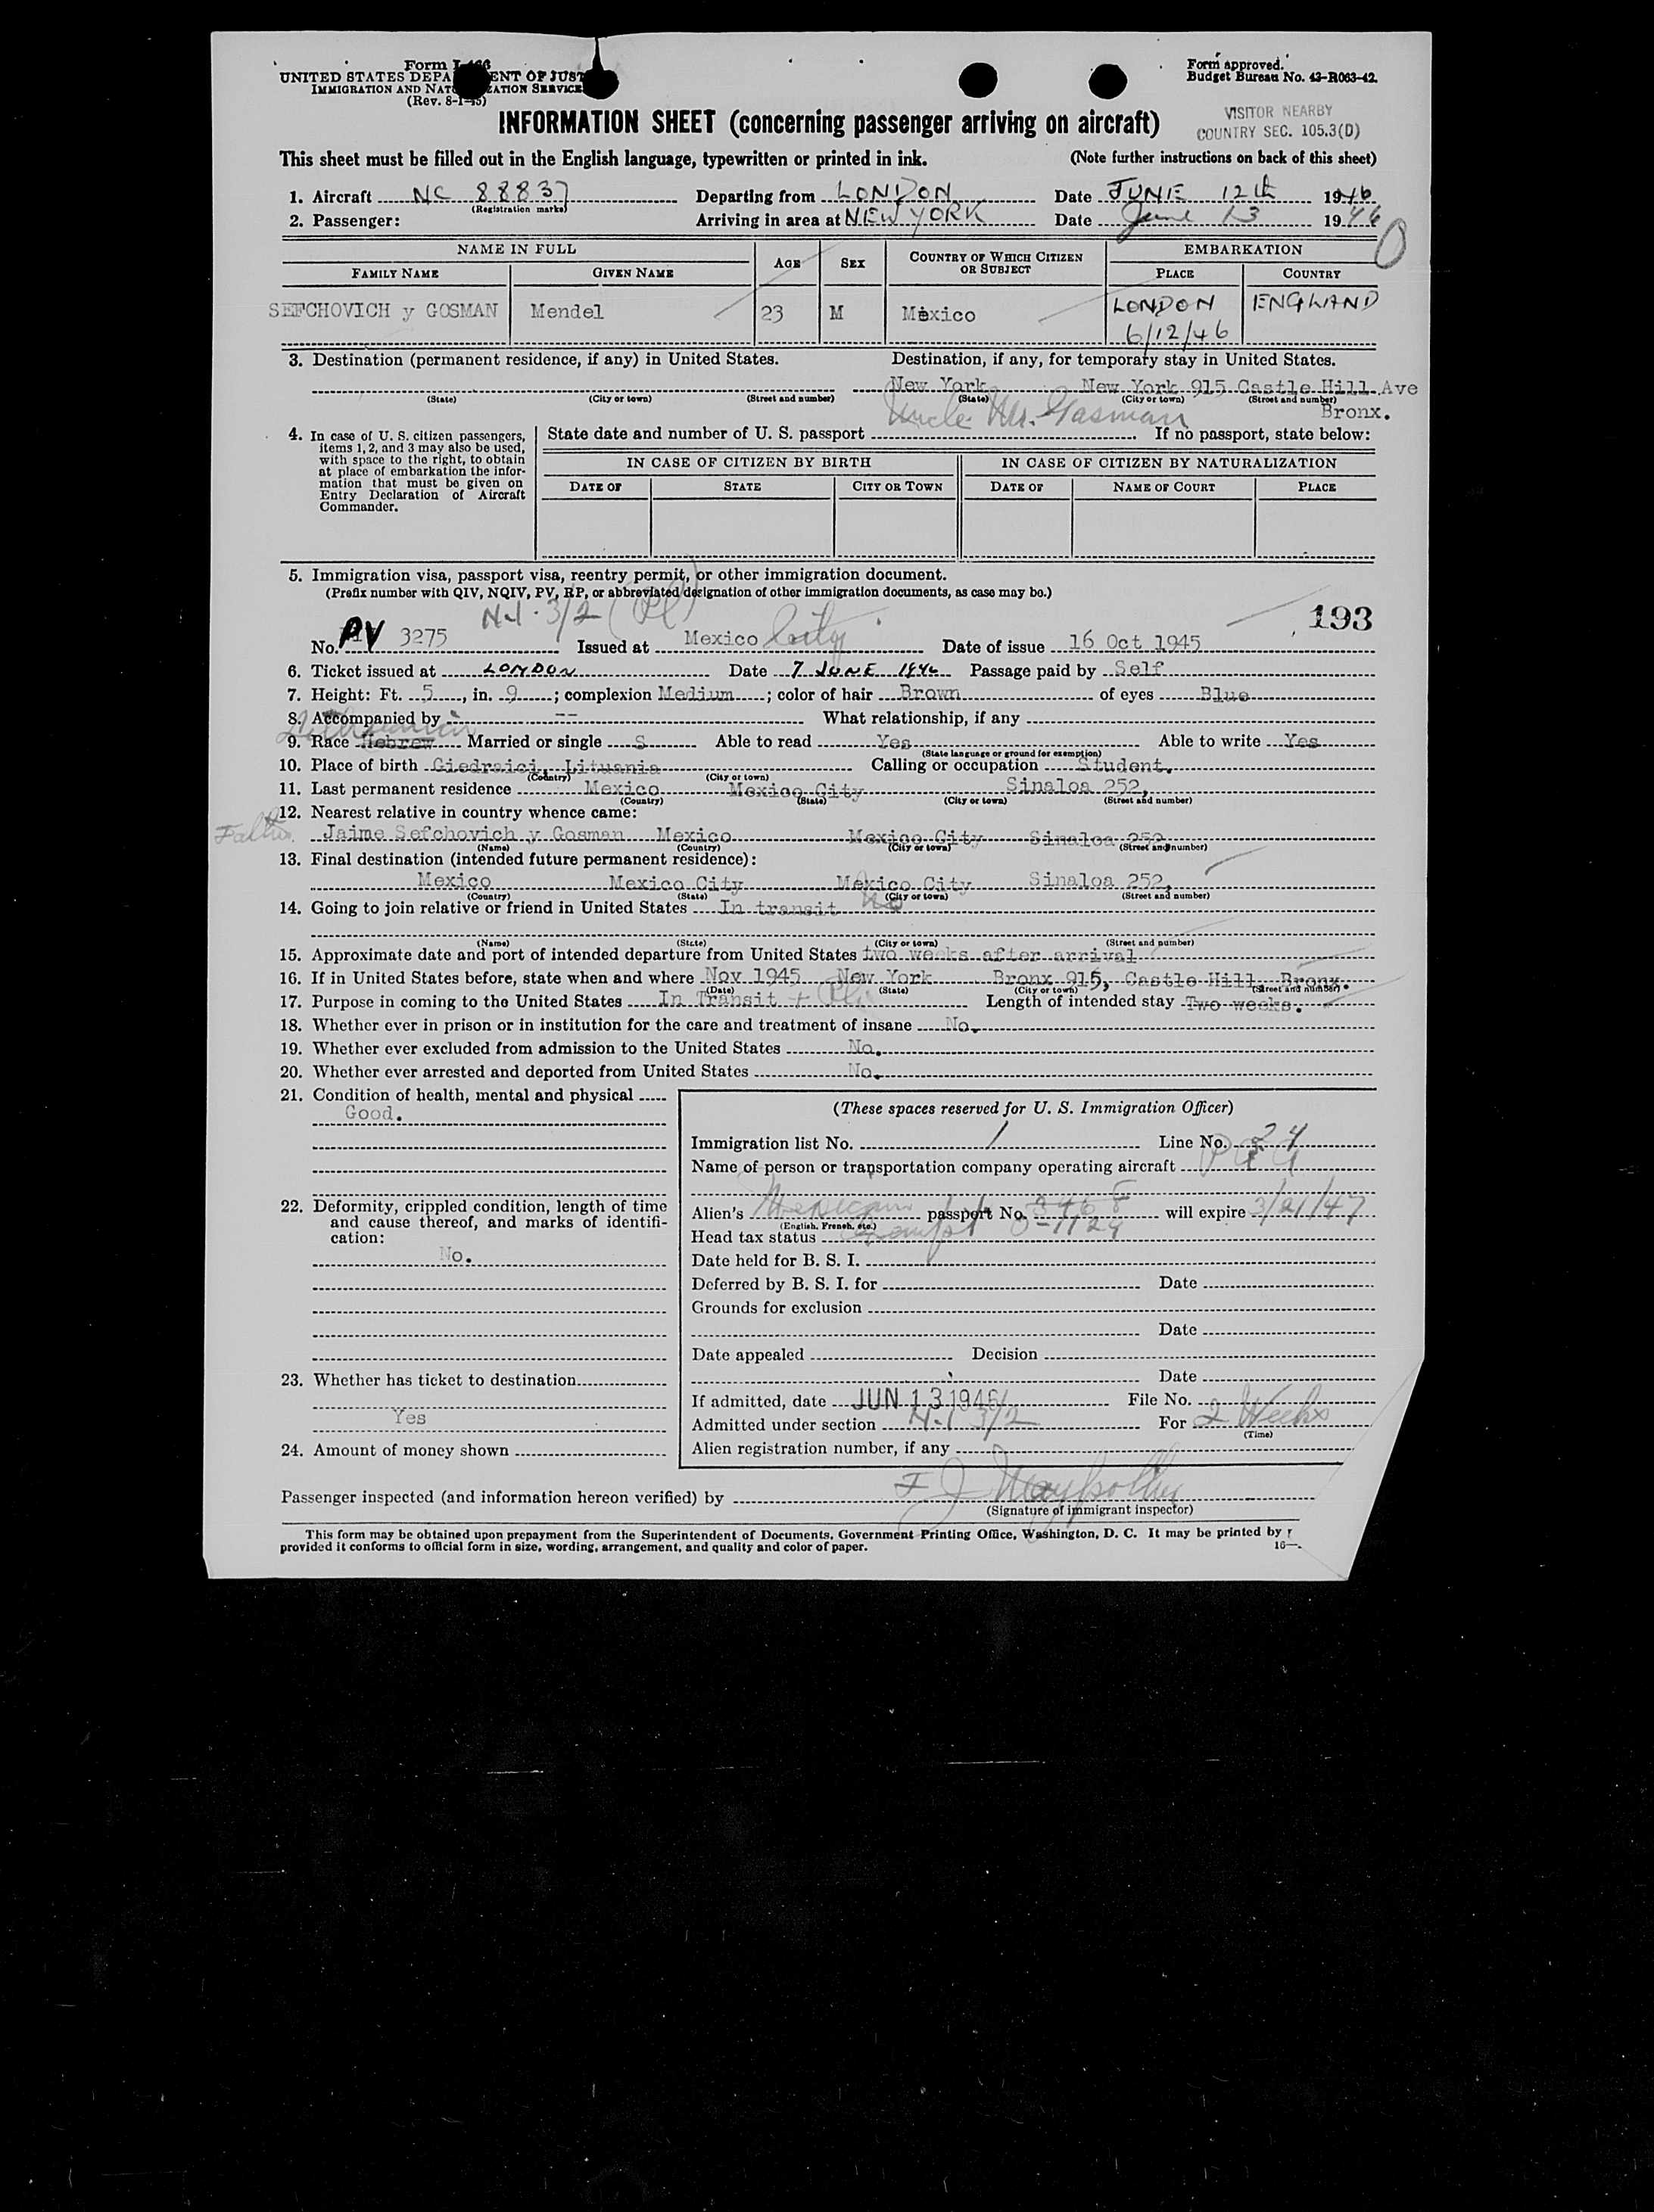 Form I-466
UNITED STATES DEPA ENT OF JUST
IMMIGRATION AND NAT ZATION SERVICE
(Rev. 8-1-45)
Form approved.
Budget Bureau No. 43-R063-42.
VISITOR NEARBY
COUNTRY SEC. 105.3(D)
INFORMATION SHEET (concerning passenger arriving on aircraft)
This sheet must be filled out in the English language, typewritten or printed in ink. (Note further instructions on back of this sheet)
1. Aircraft NC 88837 Departing from LONDON Date JUNE 12th 1946
(Registration marks)
2. Passenger: Arriving in area at NEW YORK Date June 13 1946
NAME IN FULL AGE SEX COUNTRY OF WHICH CITIZEN OR SUBJECT EMBARKATION
FAMILY NAME GIVEN NAME PLACE COUNTRY
SEFCHOVICH y GOSMAN Mendel 23 M Mexico LONDON ENGLAND
6/12/46
3. Destination (permanent residence, if any) in United States. Destination, if any, for temporary stay in United States.
New York New York 915 Castle Hill Ave
(State) (City or town) (Street and number) (State) (City or town) (Street and number)
Uncle Mr. Gasman Bronx.
4. In case of U. S. citizen passengers, items 1, 2, and 3 may also be used, with space to the right, to obtain at place of embarkation the information that must be given on Entry Declaration of Aircraft Commander.
State date and number of U. S. passport If no passport, state below:
IN CASE OF CITIZEN BY BIRTH IN CASE OF CITIZEN BY NATURALIZATION
DATE OF STATE CITY OR TOWN DATE OF NAME OF COURT PLACE
5. Immigration visa, passport visa, reentry permit, or other immigration document.
(Prefix number with QIV, NQIV, PV, RP, or abbreviated designation of other immigration documents, as case may be.)
N-1-3/2 (Pl) 193
No. PV 3275 Issued at Mexico City Date of issue 16 Oct 1945
6. Ticket issued at LONDON Date 7 JUNE 1946 Passage paid by Self
7. Height: Ft. 5, in. 9; complexion Medium; color of hair Brown of eyes Blue
8. Accompanied by -- What relationship, if any
Lithuanian
9. Race Hebrew Married or single S Able to read Yes Able to write Yes
(State language or ground for exemption)
10. Place of birth Giedraici, Lituania Calling or occupation Student.
(Country) (City or town)
11. Last permanent residence Mexico Mexico City Sinaloa 252,
(Country) (State) (City or town) (Street and number)
12. Nearest relative in country whence came:
Father Jaime Sefchovich y Gosman Mexico Mexico City Sinaloa 252
(Name) (Country) (City or town) (Street and number)
13. Final destination (intended future permanent residence):
Mexico Mexico City Mexico City Sinaloa 252,
(Country) (State) (City or town) (Street and number)
14. Going to join relative or friend in United States In transit No
(Name) (State) (City or town) (Street and number)
15. Approximate date and port of intended departure from United States two weeks after arrival
16. If in United States before, state when and where Nov 1945 New York Bronx 915, Castle Hill Bronx.
(Date) (State) (City or town) (Street and number)
17. Purpose in coming to the United States In Transit + Pl Length of intended stay Two weeks.
18. Whether ever in prison or in institution for the care and treatment of insane No.
19. Whether ever excluded from admission to the United States No.
20. Whether ever arrested and deported from United States No.
21. Condition of health, mental and physical
Good.
22. Deformity, crippled condition, length of time and cause thereof, and marks of identification:
No.
23. Whether has ticket to destination
Yes
24. Amount of money shown
(These spaces reserved for U. S. Immigration Officer)
Immigration list No. 1 Line No. 24
Name of person or transportation company operating aircraft PAA
Alien's Mexican passport No. 3468 will expire 3/21/47
(English, French, etc.)
Head tax status Exempt 0-1129
Date held for B. S. I.
Deferred by B. S. I. for Date
Grounds for exclusion
Date
Date appealed Decision
Date
If admitted, date JUN 13 1946 File No.
Admitted under section N-1 3/2 For 2 Weeks
(Time)
Alien registration number, if any
Passenger inspected (and information hereon verified) by
(Signature of immigrant inspector)
This form may be obtained upon prepayment from the Superintendent of Documents, Government Printing Office, Washington, D. C. It may be printed by
provided it conforms to official form in size, wording, arrangement, and quality and color of paper. 16—